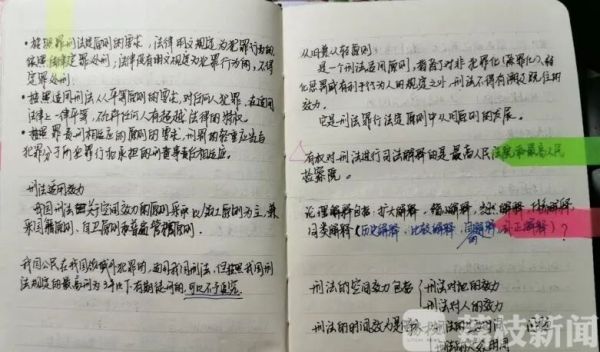 ·按照罪刑法定原则的要求，法律明文规定为犯罪行为的
依照法律定罪处刑；法律没有明文规定为犯罪行为的，不得
定罪处刑。
·按照适用刑法人人平等原则的要求，对任何人犯罪，在适用
法律上一律平等，不允许任何人有超越法律的特权。
·按照罪责刑相适应的原则的要求，刑罚的轻重应当与
犯罪分子所犯罪行和承担的刑事责任相适应。
刑法适用效力
我国刑法关于空间效力的原则采取以属地原则为主，兼
采国籍原则、自卫原则和普遍管辖原则。
我国公民在我国领域外犯罪的，适用我国刑法，但按照我国刑
法规定的最高刑为3年以下有期徒刑的，可以不予追究。
从旧兼从轻原则
是一个刑法适用原则，除了对非犯罪化(除罪化)、轻
化思罚或有利于行为人的规定之外，刑法不得有溯及既往的
效力。
它是刑法罪行法定原则中从旧原则的发展。
有权对刑法进行司法解释的是最高人民法院和最高人民
检察院。
论理解释包括：扩大解释，缩小解释，当然解释，体系解释，
同类解释(历史解释，比较解释，目的解释，补正解释)？
刑法的空间效力包括
刑法对地的效力
刑法对人的效力
刑法的时间效力是
荔枝新闻